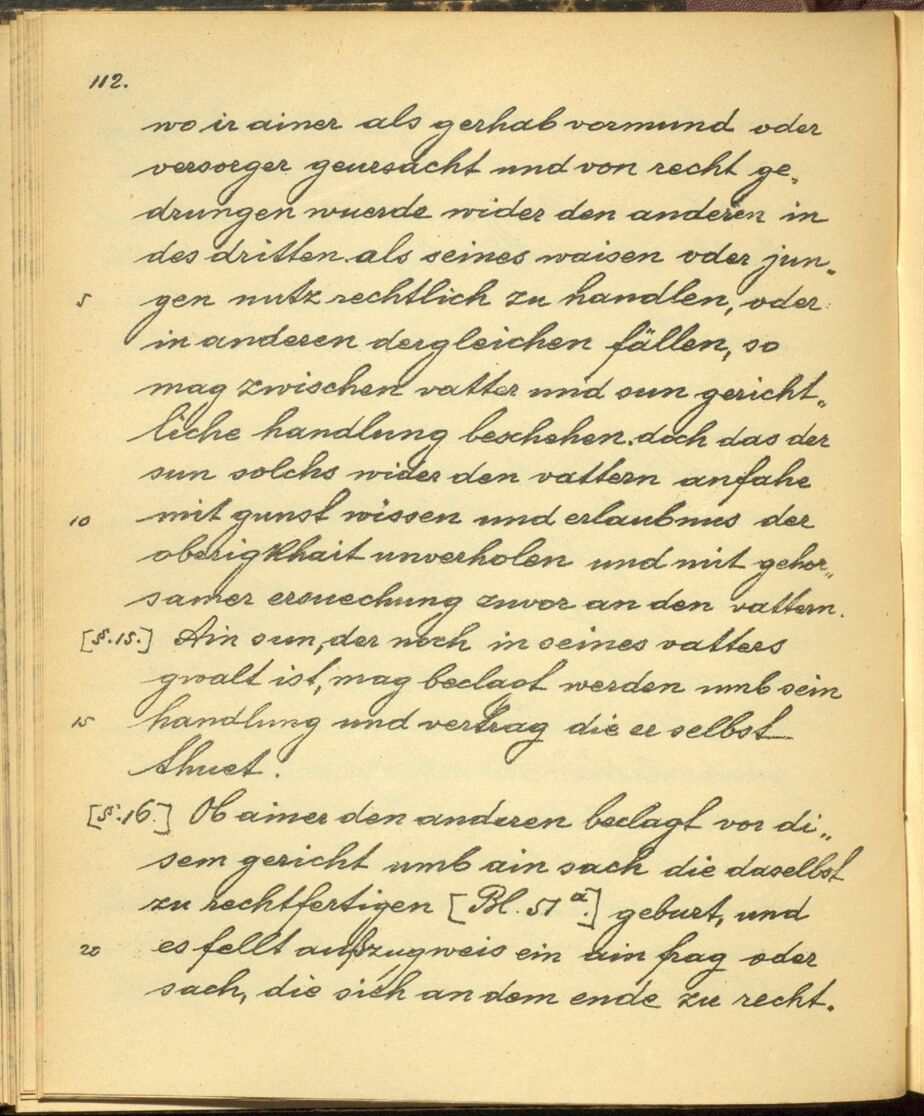 112.
wo ir ainer als gerhab vormund oder
versorger geursacht und von recht ge„
drungen wuerde wider den anderen in
des dritten als seines waisen oder jun„
5 gen nutz rechtlich zu handlen, oder
in anderen dergleichen fällen, so
mag zwischen vatter und sun gericht„
liche handlung beschehen. doch das der
sun solchs wider den vattern anfahe
10 mit gunst wissen und erlaubnus der
oberigkhait unverholen und mit gehor„
samer ersuechung zuvor an den vattern.
[§.15.] Ain sun, der noch in seines vatters
gwalt ist, mag beclagt werden umb sein
15 handlung und vertrag die er selbst
thuet.
[§.16.] Ob ainer den anderen beclagt vor di„
sem gericht umb ain sach die daselbst
zu rechtfertigen [Bl. 51 a.] geburt, und
20 es fellt außzugweis ein ain frag oder
sach, die sich an dem ende zu recht„